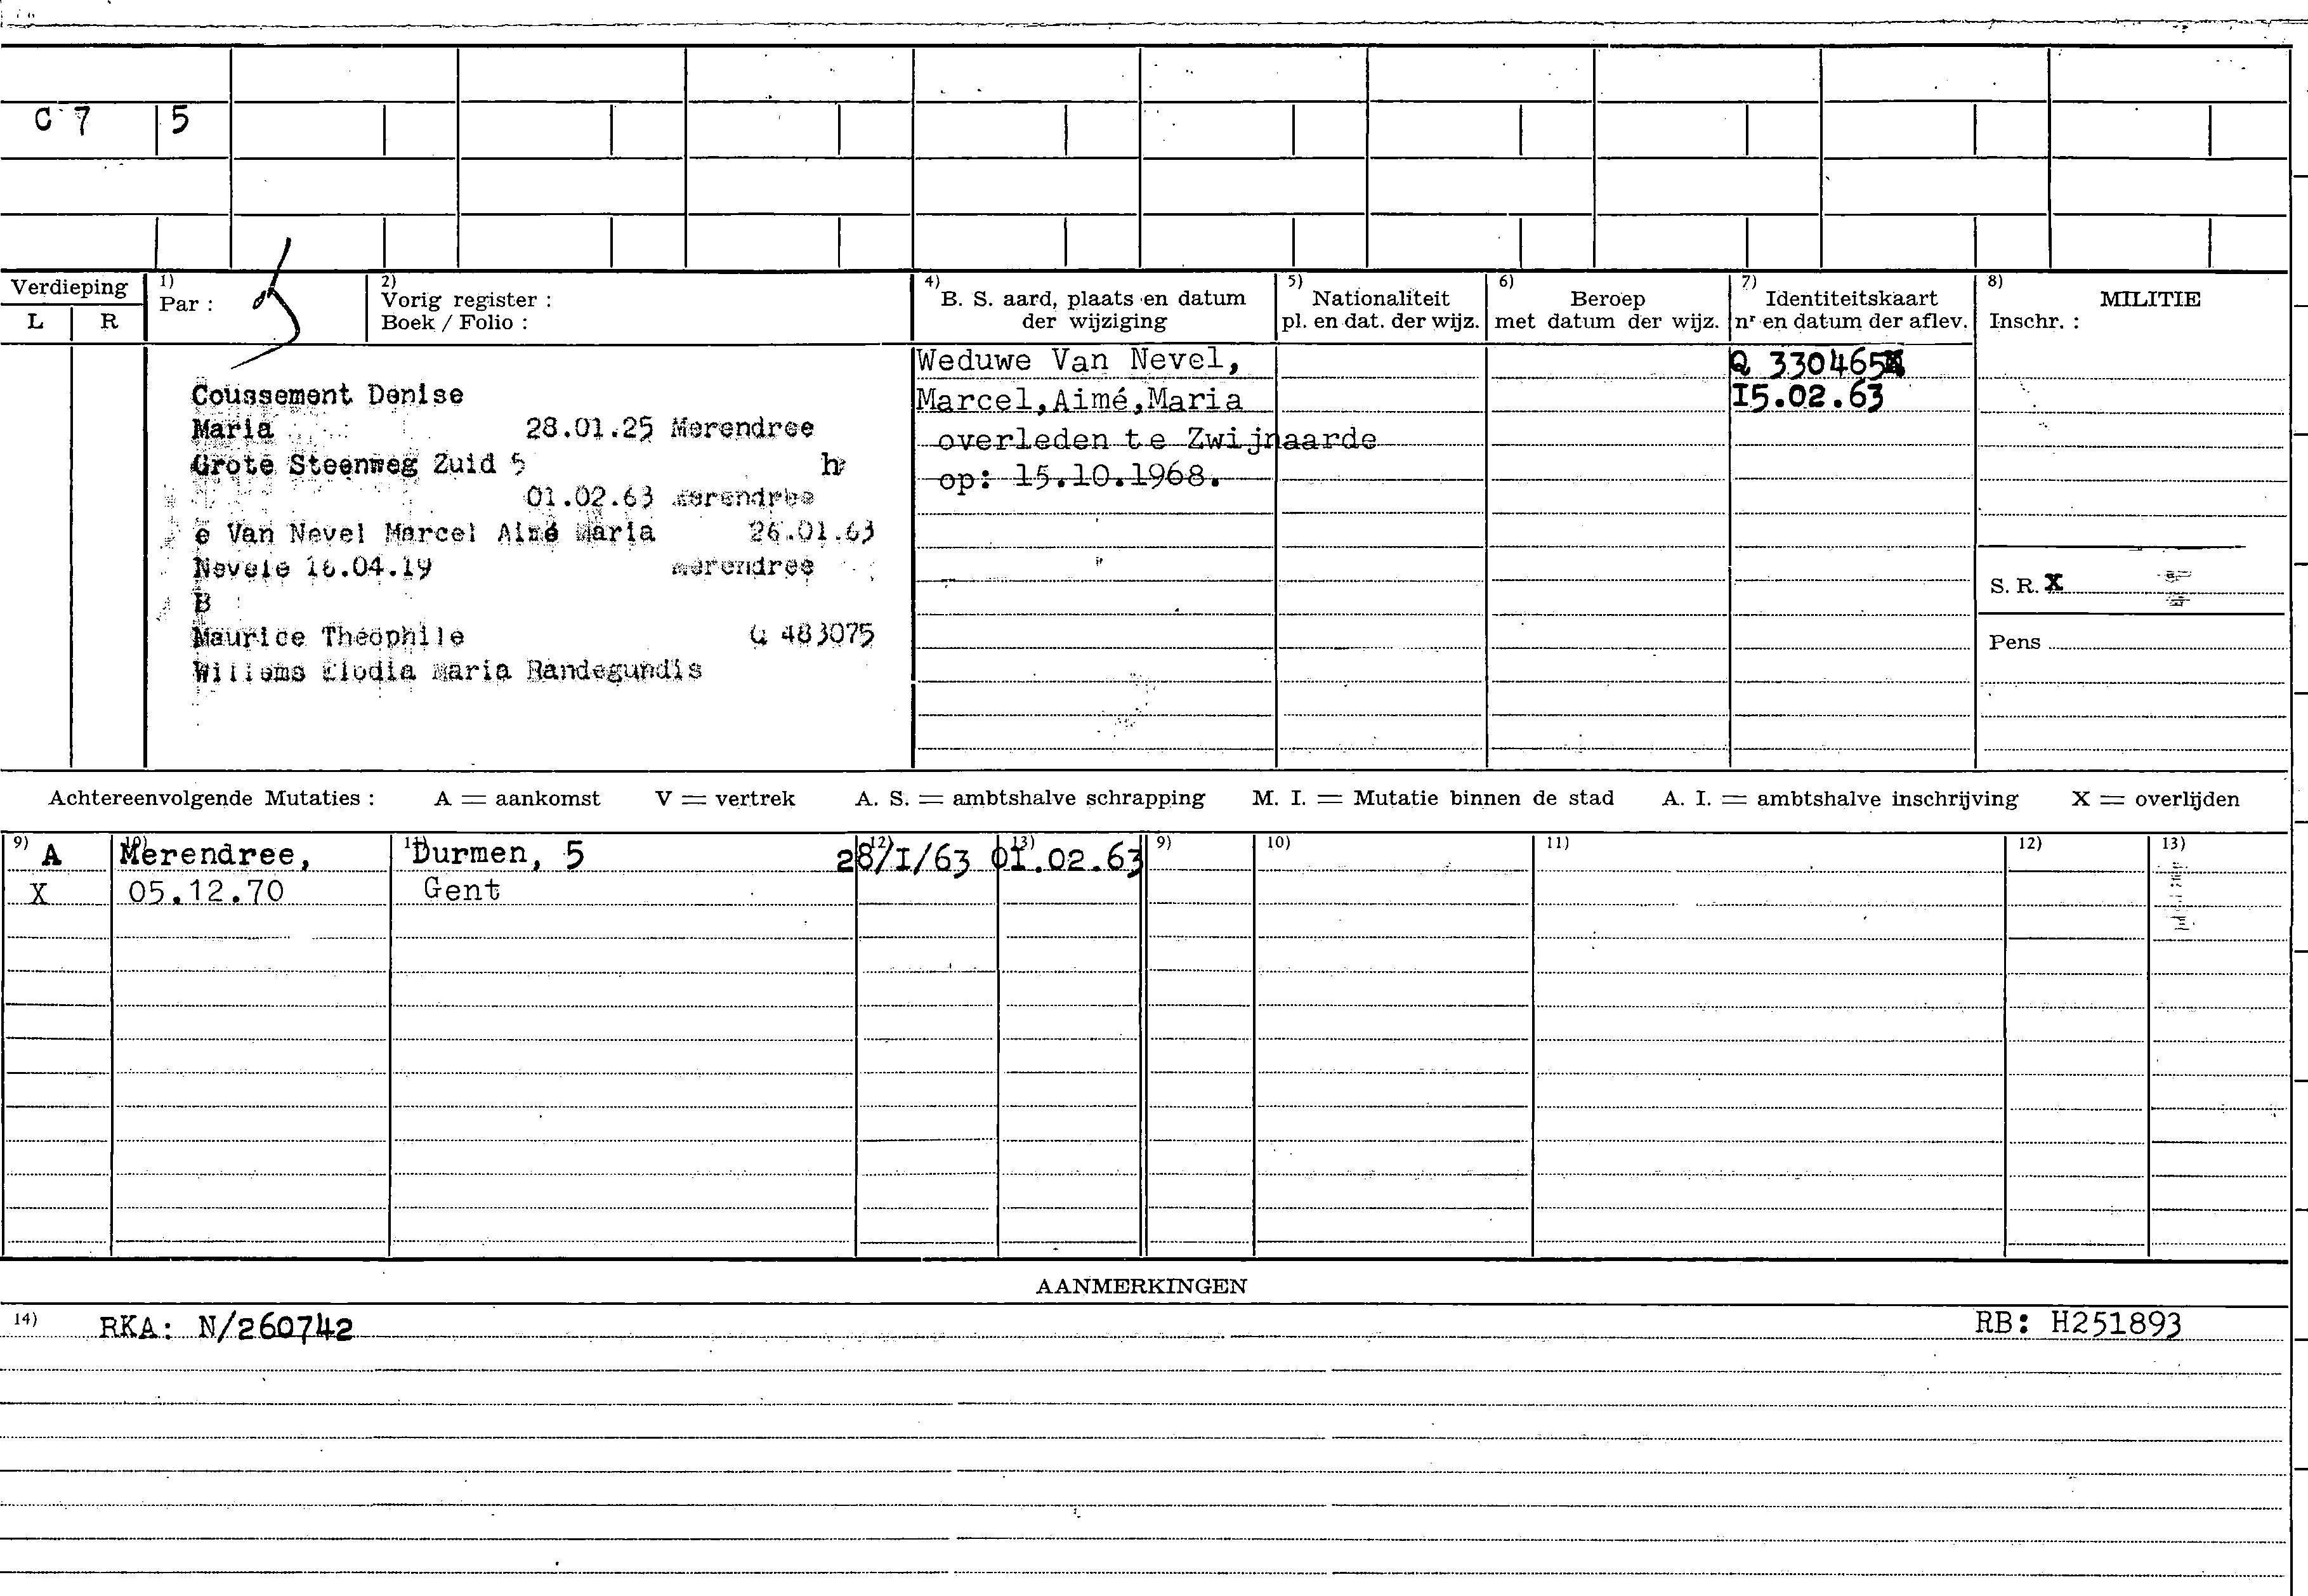 C 7 5
Verdieping
L R
1)
Par :
2)
Vorig register :
Boek / Folio :
4)
B. S. aard, plaats en datum
der wijziging
5)
Nationaliteit
pl. en dat. der wijz.
6)
Beroep
met datum der wijz.
7)
Identiteitskaart
nr en datum der aflev.
8)
MILITIE
Inschr. :
Coussement Denise
Maria 28.01.25 Merendree
Grote Steenweg Zuid 5 h
01.02.63 Merendree
e Van Nevel Marcel Aimé Maria 26.01.63
Nevele 16.04.19 Merendree
B
Maurice Théophile 483075
Willems Elodia Maria Randegundis
Weduwe Van Nevel,
Marcel,Aimé,Maria
overleden te Zwijnaarde
op: 15.10.1968.
Q 330465
I5.02.63
S. R. X
Pens
Achtereenvolgende Mutaties : A = aankomst V = vertrek A. S. = ambtshalve schrapping M. I. = Mutatie binnen de stad A. I. = ambtshalve inschrijving X = overlijden
9) 10) 11) 12) 13) 9) 10) 11) 12) 13)
A Merendree, Durmen, 5 28/I/63 01.02.63
X 05.12.70 Gent
AANMERKINGEN
14) RKA: N/260742 RB: H251893